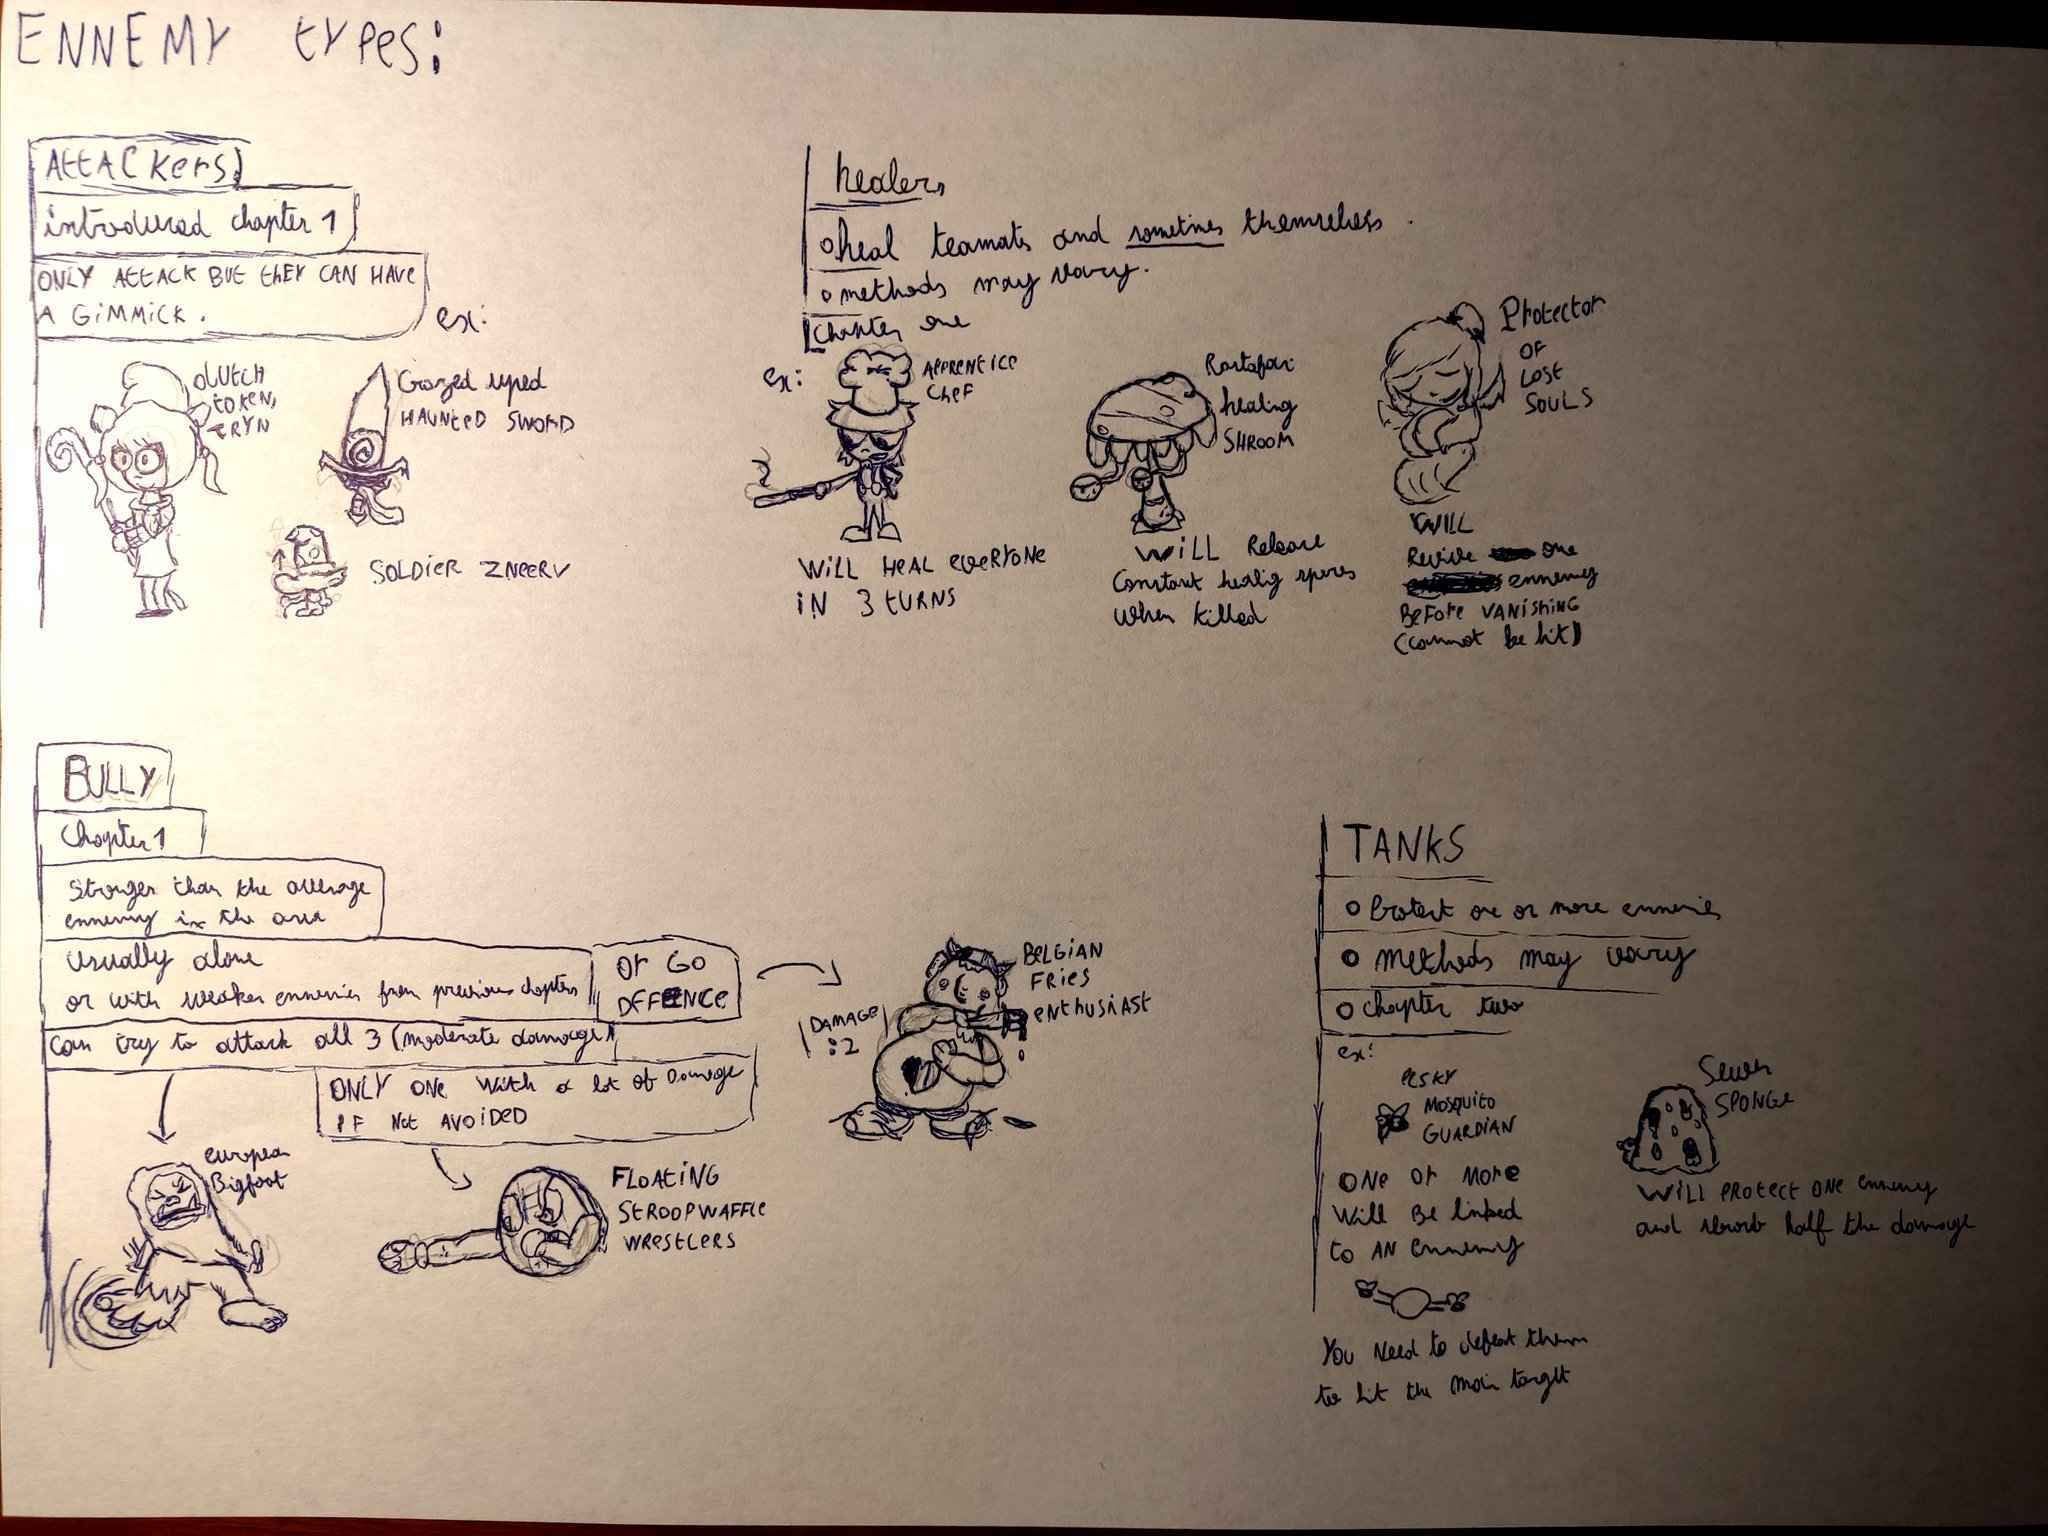 ENNEMY types:
Attackers
introduced chapter 1
ONLY ATTACK BUT tHEY CAN HAVE
A GiMMiCK.
ex:
tOKEN,
HAUNtED SWORD
SOLDiER ZNEERV
healers
heal teamates and sometimes themselves.
methods may vary.
Chapter one
ex:
APPRENtiCE
CHEF
WiLL HEAL EVERYONE
iN 3 tURNS
Rastafari
healing
SHROOM
WiLL Release
Constant healig spores
when killed
Protector
OF
LOST
SOULS
WILL
Revive one
ennemy
BeFore VANiSHiNG
(cannot be hit)
BULLY
Chapter 1
Stronger than the average
ennemy in the area
Usually alone
or with weaker ennemies from previous chapters
Or GO
DEFENCE
Can try to attack all 3 (moderate damage)
ONLY ONE With a lot of Damage
iF Not AVOiDED
european
Bigfoot
FLOAtiNG
StROOPWAFFLE
WRESTLERS
DAMAGE
:2
BELGiAN
FRiES
eNtHUSiASt
TANKS
Protect one or more ennemies
methods may vary
chapter two
ex:
PESKY
MOSQUitO
GUARDiAN
ONe Or MORe
Will Be linked
to AN ennemy
You Need to defeat them
to hit the main target
Sewer
SPONGE
WiLL PROtECt ONE ennemy
and absorb half the damage